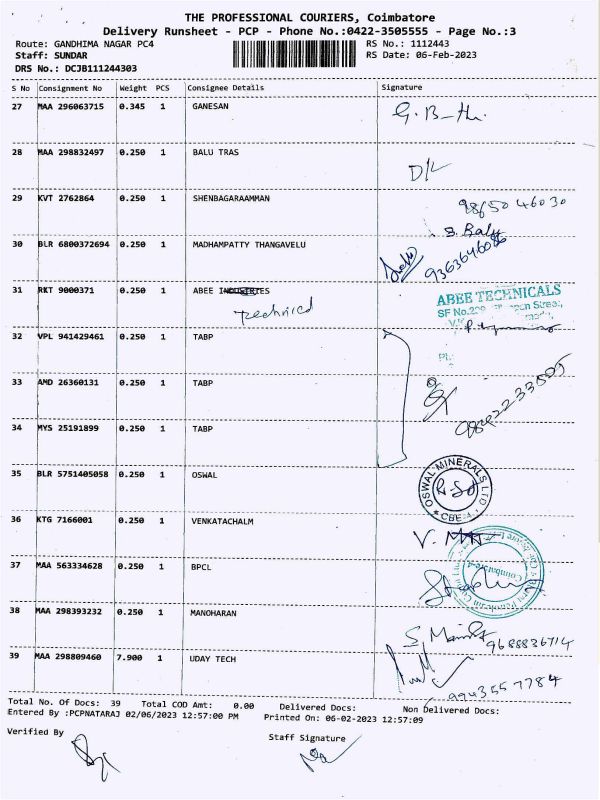 THE PROFESSIONAL COURIERS, Coimbatore
Delivery Runsheet - PCP - Phone No.:0422-3505555 - Page No.:3
Route: GANDHIMA NAGAR PC4 RS No.: 1112443
Staff: SUNDAR RS Date: 06-Feb-2023
DRS No.: DCJB111244303
S No Consignment No Weight PCS Consignee Details Signature
27 MAA 296063715 0.345 1 GANESAN
28 MAA 298832497 0.250 1 BALU TRAS
D/L
29 KVT 2762864 0.250 1 SHENBAGARAAMMAN
9865046030
30 BLR 6800372694 0.250 1 MADHAMPATTY THANGAVELU
S. Balu
9363646086
31 RKT 9000371 0.250 1 ABEE INDUSTRIES
Technical
ABEE TECHNICALS
SF No.
32 VPL 941429461 0.250 1 TABP
33 AMD 26360131 0.250 1 TABP
34 MYS 25191899 0.250 1 TABP
9842233505
35 BLR 5751405058 0.250 1 OSWAL
OSWAL MINERALS LTD
CBE
36 KTG 7166001 0.250 1 VENKATACHALM
37 MAA 563334628 0.250 1 BPCL
Coimbatore
38 MAA 298393232 0.250 1 MANOHARAN
9688836714
39 MAA 298809460 7.900 1 UDAY TECH
9943557784
Total No. Of Docs: 39 Total COD Amt: 0.00 Delivered Docs: Non Delivered Docs:
Entered By :PCPNATARAJ 02/06/2023 12:57:00 PM Printed On: 06-02-2023 12:57:09
Verified By Staff Signature